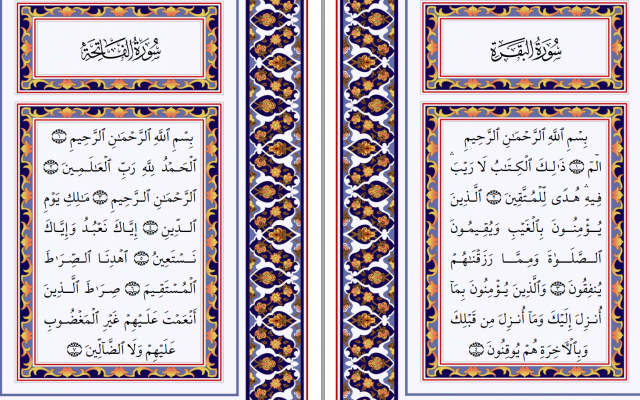 سُورَةُ الفَاتِحَةِ
بِسْمِ ٱللَّهِ ٱلرَّحْمَٰنِ ٱلرَّحِيمِ ۝١
ٱلْحَمْدُ لِلَّهِ رَبِّ ٱلْعَٰلَمِينَ ۝٢
ٱلرَّحْمَٰنِ ٱلرَّحِيمِ ۝٣ مَٰلِكِ يَوْمِ
ٱلدِّينِ ۝٤ إِيَّاكَ نَعْبُدُ وَإِيَّاكَ
نَسْتَعِينُ ۝٥ ٱهْدِنَا ٱلصِّرَٰطَ
ٱلْمُسْتَقِيمَ ۝٦ صِرَٰطَ ٱلَّذِينَ
أَنْعَمْتَ عَلَيْهِمْ غَيْرِ ٱلْمَغْضُوبِ
عَلَيْهِمْ وَلَا ٱلضَّآلِّينَ ۝٧
سُورَةُ البَقَرَةِ
بِسْمِ ٱللَّهِ ٱلرَّحْمَٰنِ ٱلرَّحِيمِ
الٓمٓ ۝١ ذَٰلِكَ ٱلْكِتَٰبُ لَا رَيْبَ ۛ
فِيهِ ۛ هُدًى لِّلْمُتَّقِينَ ۝٢ ٱلَّذِينَ
يُؤْمِنُونَ بِٱلْغَيْبِ وَيُقِيمُونَ
ٱلصَّلَوٰةَ وَمِمَّا رَزَقْنَٰهُمْ
يُنفِقُونَ ۝٣ وَٱلَّذِينَ يُؤْمِنُونَ بِمَآ
أُنزِلَ إِلَيْكَ وَمَآ أُنزِلَ مِن قَبْلِكَ
وَبِٱلْأَخِرَةِ هُمْ يُوقِنُونَ ۝٤